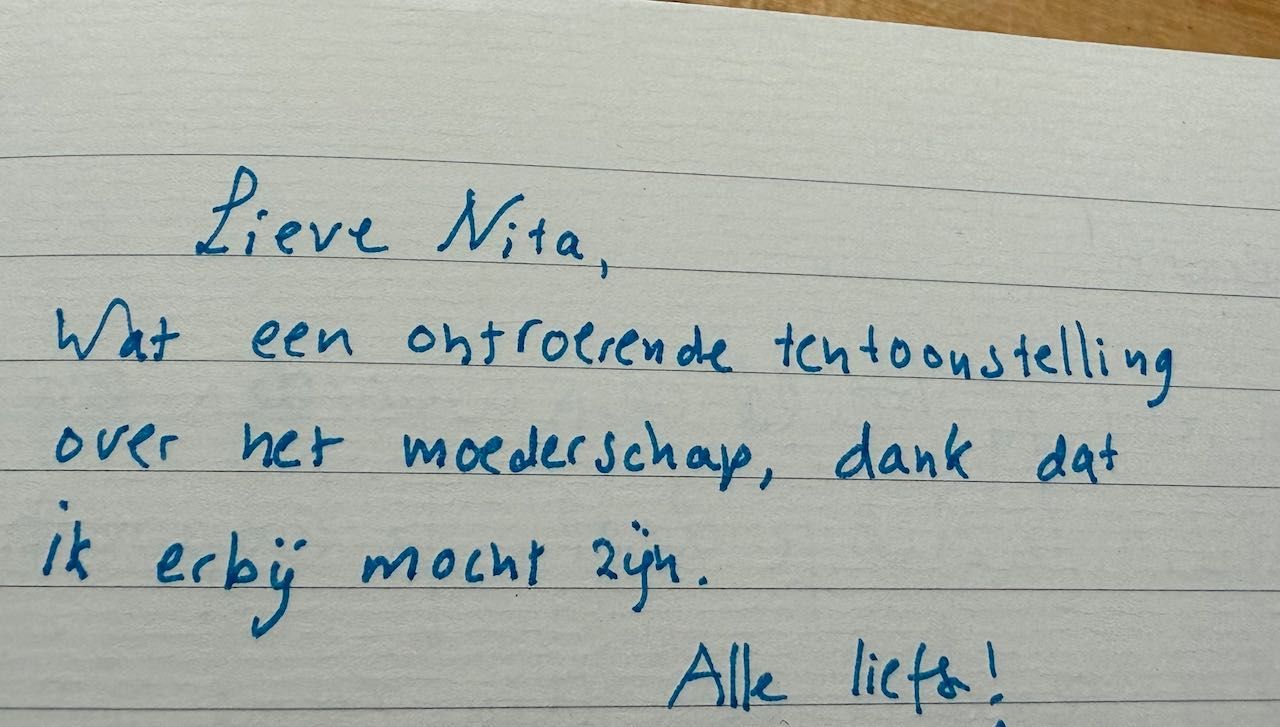 Lieve Nita,
Wat een ontroerende tentoonstelling
over het moederschap, dank dat
ik erbij mocht zijn.
Alle liefs!